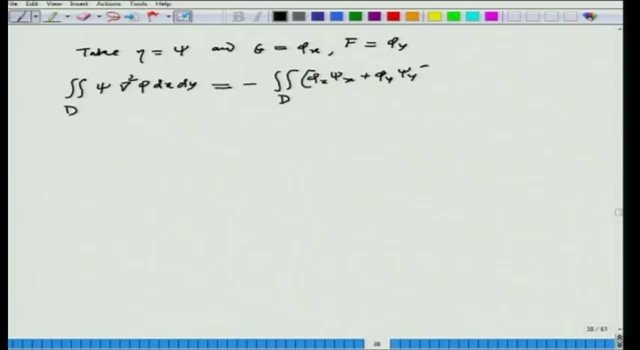 File Edit View Insert Actions Tools Help
Take η = ψ and G = φx, F = φy
∬ ψ ∇²φ dx dy = - ∬ (φx ψx + φy ψy
D D
38 / 61
38